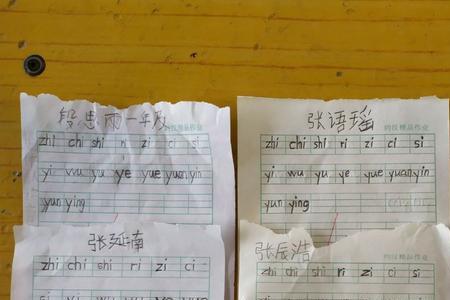 段思雨一年级
zhi chi shi ri zi ci si
yi wu yu ye yue yuan yin
yun ying
张语瑶
作业精品作业
zhi chi shi ri zi ci si
yi wu yu ye yue yuan yin
yun ying
张延南
zhi chi shi ri zi ci
张辰浩
zhi chi shi ri zi ci si